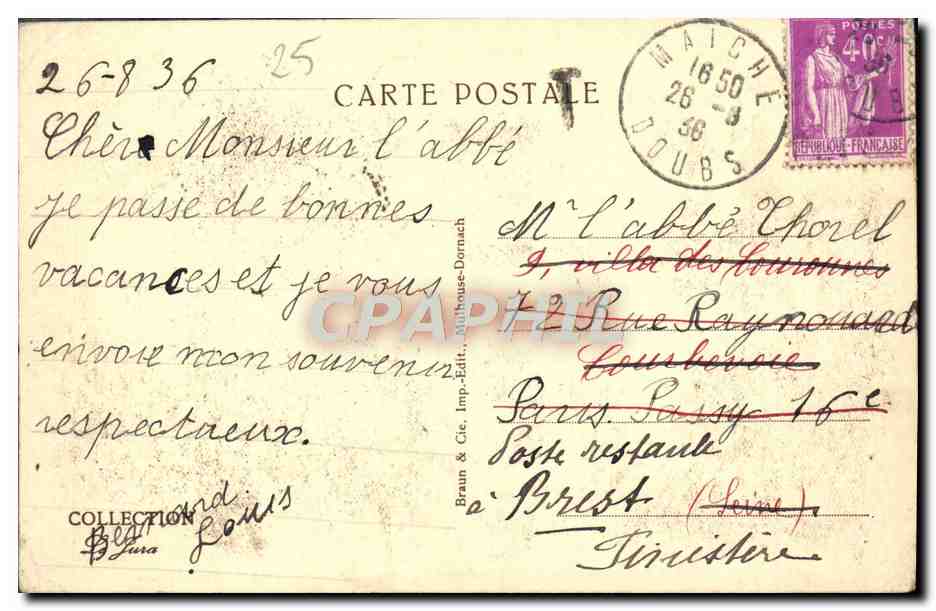 26-8 36
25
CARTE POSTALE
T
MAICHE
16 50
26 -8
36
DOUBS
POSTES
40c
REPUBLIQUE-FRANÇAISE
Chère Monsieur l'abbé
je passe de bonnes
vacances et je vous
envoie mon souvenir
respectueux.
Louis
COLLECTION
Jura
Braun & Cie, Imp.-Edit., Mulhouse-Dornach
CPAPHIL
Mr l'abbé Thorel
9, villa des Couronnes
72 Rue Raynouard
Courbevoie
Paris. Passy 16e
Poste restante
à Brest (Seine)
Finistère